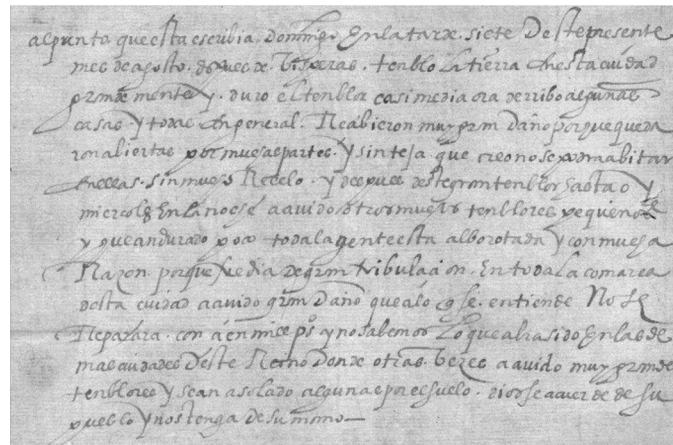 al punto que esta escribia. Domingo En la tarde. siete Deste presente
mes de agosto. despues de. bisperas. tenblo La tierra En esta ciudad
grandemente y. duro el tenblar casi media ora derribo algunas
casas y todas En general. Recibieron muy gran Daño porque queda
ron abiertas por muchas partes. y sin teja que creo no se podran abitar
En ellas. sin mucho Recelo. y despues deste gran tenblor hasta oy
miercoles En la noche a avido otros muchos tenblores pequeños
y que an durado poco toda la gente esta alborotada y con mucha
Razon. porque fue dia de gran tribulacion. En toda La comarca
desta ciudad a avido gran Daño que a lo q se. entiende No se
Reparara. con cien mill ps y no sabemos Lo que abra sido En las de
mas ciudades Deste Reino Donde otras. bezes a avido muy grandes
tenblores y se an asolado algunas por el suelo. dios se acuerde de su
pueblo y nos tenga de su mano